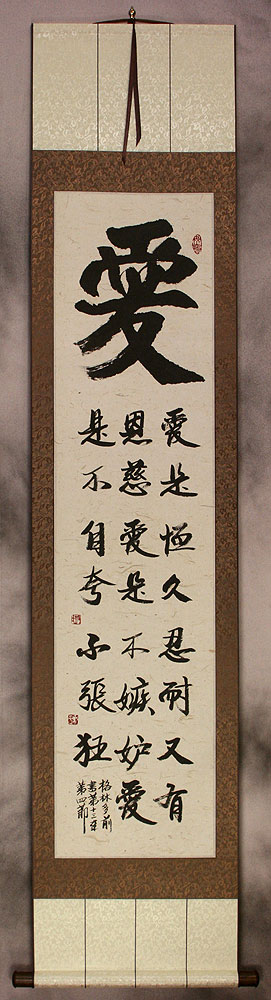 愛
愛是恒久忍耐又有
恩慈愛是不嫉妒愛
是不自夸不張狂
格林多前
書第十三章
第四節